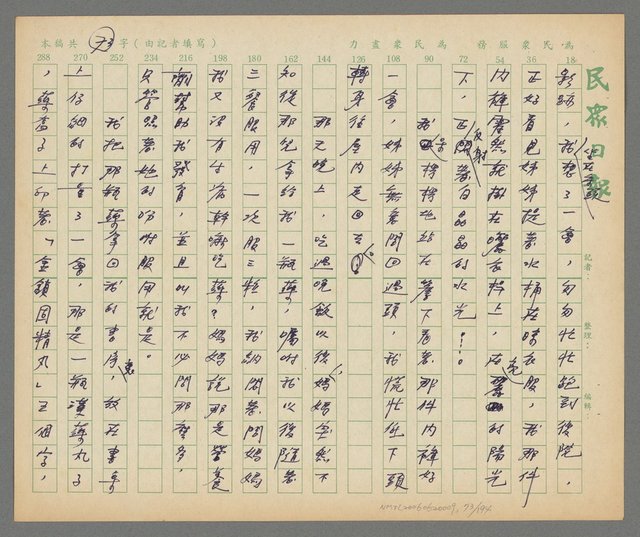 為民眾服務 為民眾盡力
本稿共 73 字(由記者填寫)
民眾日報
記者:
整理:
編輯:
18
36
54
72
90
108
126
144
162
180
198
216
234
252
270
288
,我想了一會,匆匆忙忙跑到後院,
正好看見姊姊提著水桶在晾衣服,我那件
內褲霍然就掛在曬衣桿上,在亮的陽光
下,反射著白晶晶的水光……。
我楞楞地站在簷下看著那件內褲好
一會,姊姊無意間回過頭,我慌忙低下頭
轉身往屋內走回去。
那天晚上,吃過晚飯以後,媽媽忽然不
知從那兒拿給我一瓶藥,囑咐我以後隨著
三餐服用,一次服三粒,我納悶著問媽媽
我又沒有生病幹嘛吃藥?媽媽說那是營養
劑幫助我發育,並且叫我不必問那麼多,
只管照著她的吩咐服用就是。
我把那瓶藥拿回我的書房,放在書桌
上仔細的打量了一會,那是一瓶漢藥丸子
,藥盒子上印著「金鎖固精丸」五個字,
NMTL20060620009, 73/194